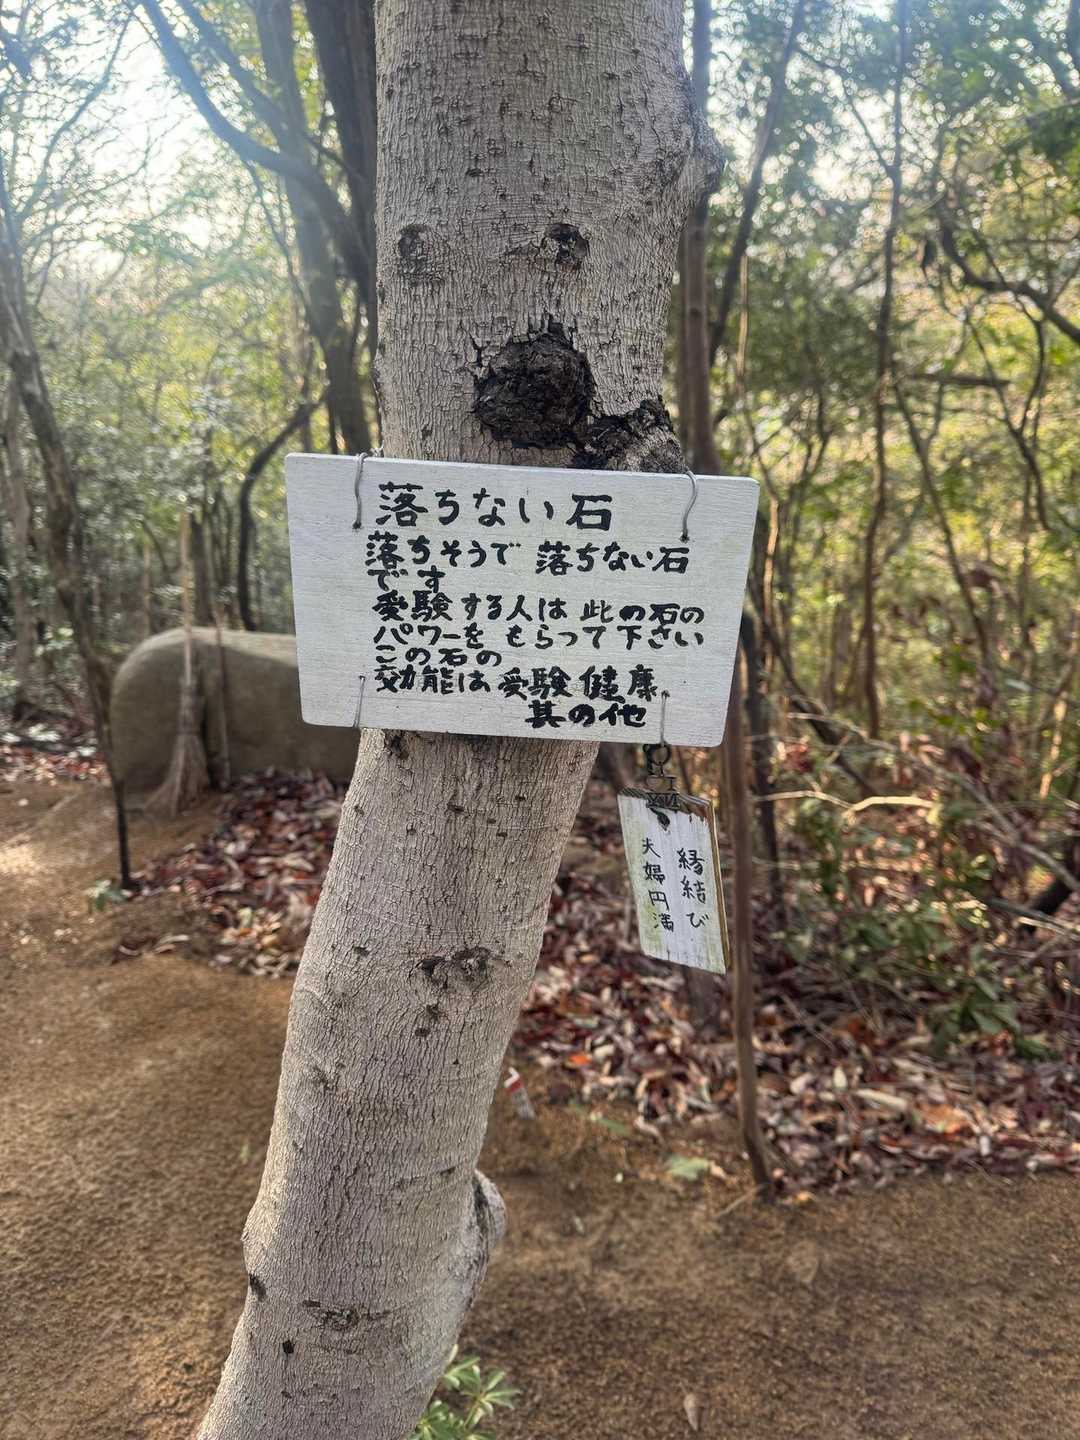 落ちない石
落ちそうで 落ちない石
です
受験する人は 此の石の
パワーを もらって下さい
この石の
効能は 受験 健康
其の他
縁結び
夫婦円満